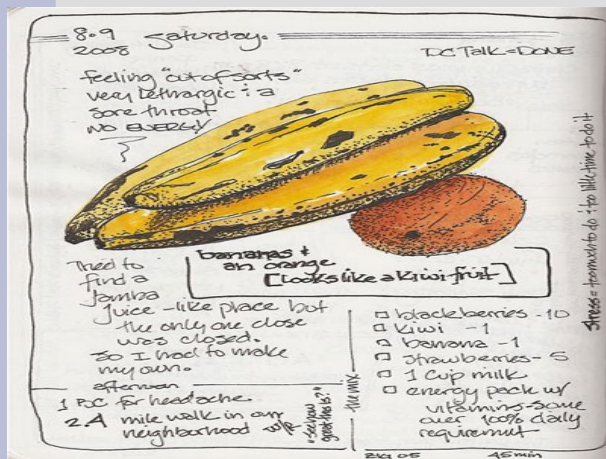 8.9 Saturday.
2008
DC Talk = DONE
feeling "out of sorts"
very lethargic & a
sore throat
NO ENERGY
bananas &
an orange
[Looks like a kiwi fruit]
Tried to
find a
Jamba
Juice - like place but
the only one close
was closed.
So I had to make
my own.
afternoon
1 for headache
2 A mile walk in our
neighborhood
"See how
great this is?"
the mix
blackberries - 10
kiwi - 1
banana - 1
strawberries - 5
1 cup milk
energy pack w/
vitamins - some
over 100% daily
requirement
45 min
Stress = too much to do & too little time to do it